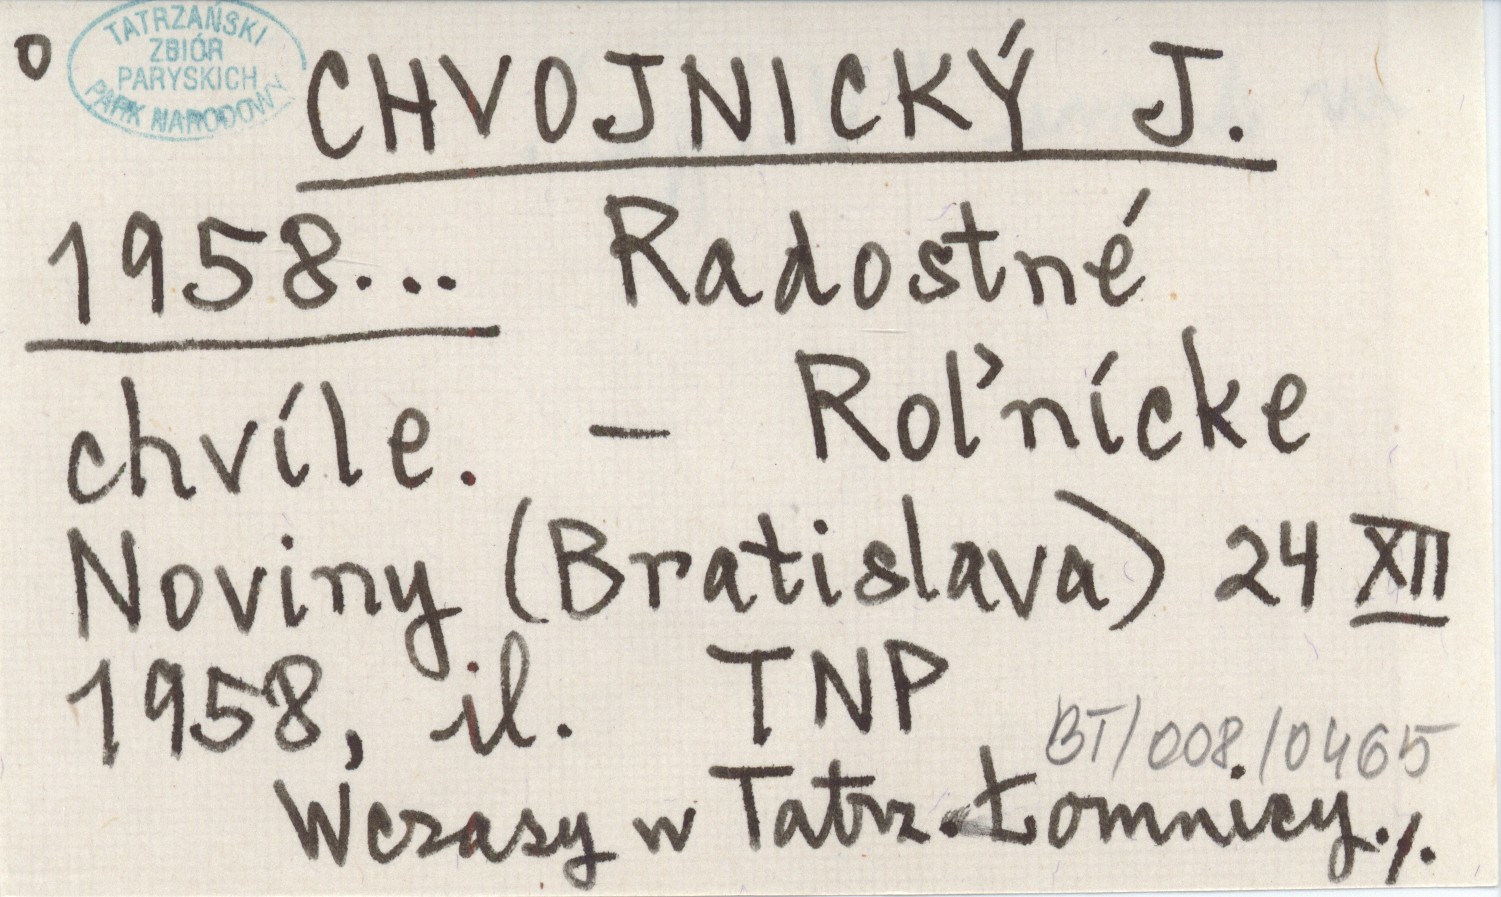 o
TATRZAŃSKI
ZBIÓR
PARYSKICH
PARK NARODOWY
CHVOJNICKÝ J.
1958... Radostné
chvíle. – Roľnícke
Noviny (Bratislava) 24 XII
1958, il. TNP
BT/008./0465
Wczasy w Tatrz. Łomnicy./.